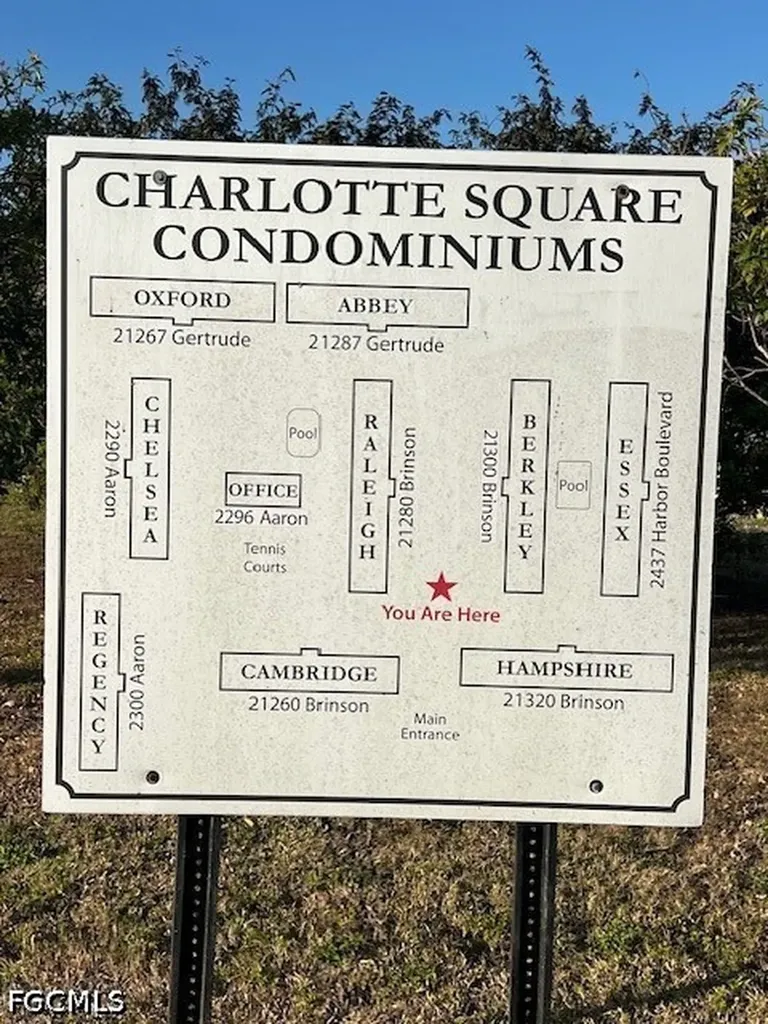 CHARLOTTE SQUARE
CONDOMINIUMS
OXFORD
21267 Gertrude
ABBEY
21287 Gertrude
CHELSEA
2290 Aaron
Pool
OFFICE
2296 Aaron
Tennis
Courts
RALEIGH
21280 Brinson
BERKLEY
21300 Brinson
Pool
ESSEX
2437 Harbor Boulevard
You Are Here
REGENCY
2300 Aaron
CAMBRIDGE
21260 Brinson
HAMPSHIRE
21320 Brinson
Main
Entrance
FGCMLS